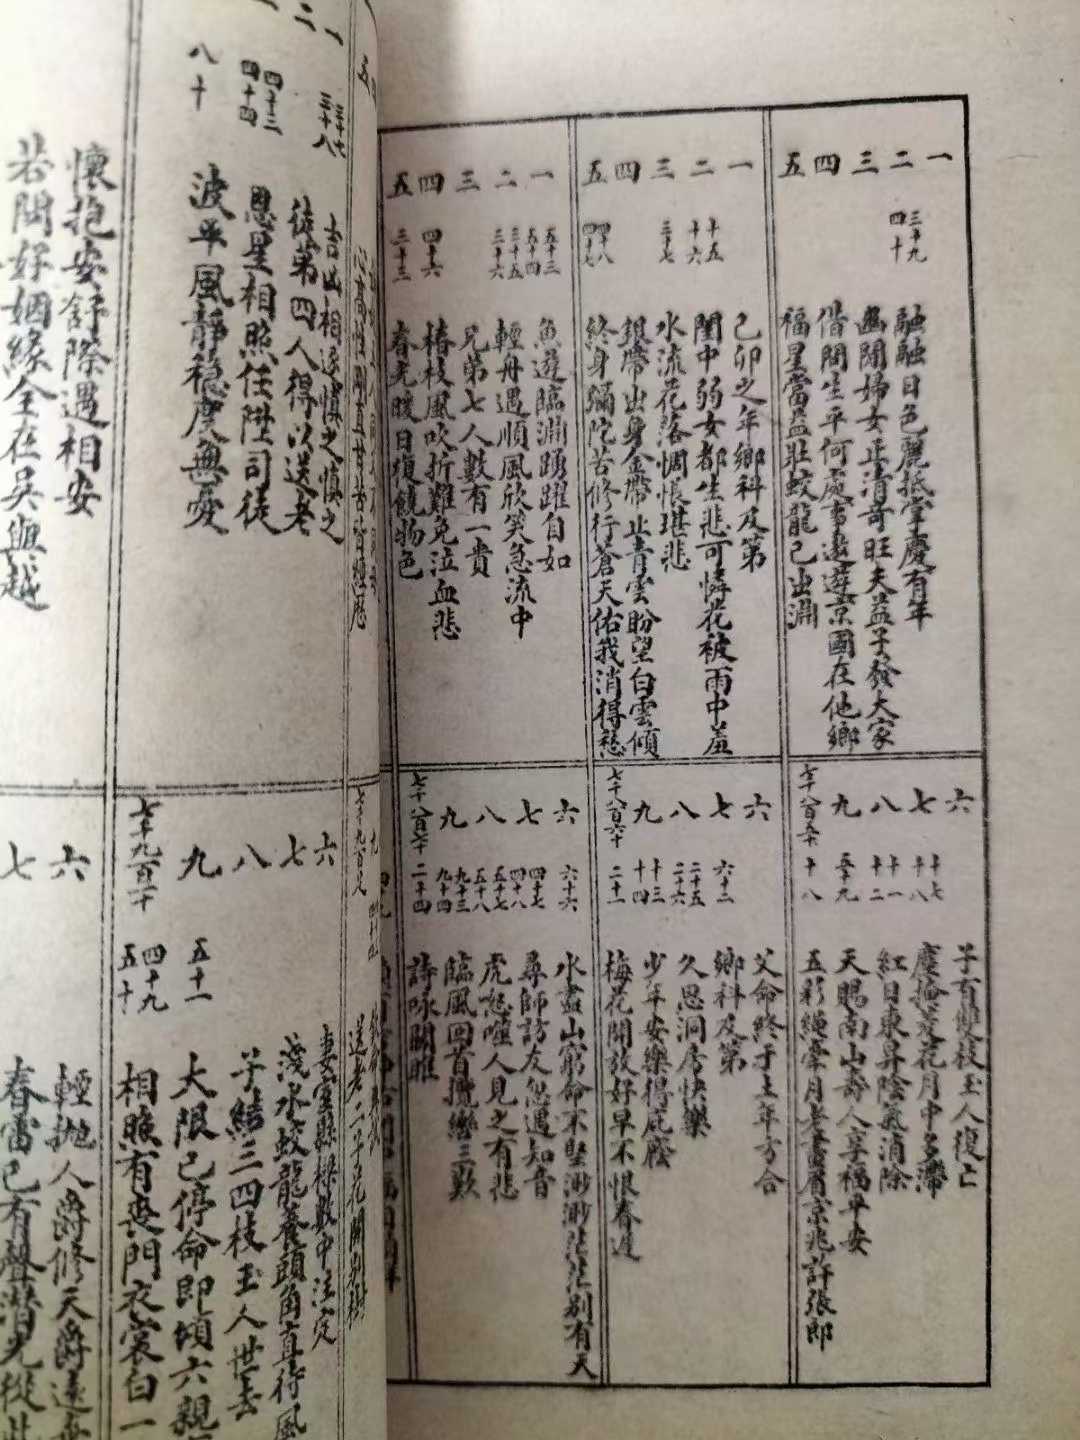 一
二 三十九 四十
三
四
五
融融日色麗抵掌慶有年
幽閑婦女正清奇旺夫益子發大家
借問生平何處事遨遊京國在他鄉
福星當益壯蛟龍已出淵
六
七 十七 十八
八 十一 十二
九 五十九
七千八百五十 十八
子有雙枝玉人復亡
塵掩菱花月中多滯
紅日東昇陰氣消除
天賜南山壽人享福平安
五彩繩牽月老書眉京兆許張郎
一
二 十五 十六
三 三十七
四
五 四十八 四十七
己卯之年鄉科及第
閨中弱女都生悲可憐花被雨中羞
水流花落惆悵堪悲
銀帶出身金帶止青雲盼望白雲傾
終身彌陀苦修行蒼天佑我消得愆
六
七 六十二
八 二十五 二十六
九 十三 十四
七千八百六十 二十一
父命終于土年方合
鄉科及第
久思洞房快樂
少年安樂得庇廕
梅花開放好早不恨春遲
一 五十三 五十四
二 三十五 三十六
三
四 四十六
五 三十三
魚遊臨淵踴躍自如
輕舟遇順風欣笑急流中
兄弟七人數有一貴
椿枝風吹折難免泣血悲
春光暖日復饒物色
六 六十六
七 四十七 四十八
八 五十七 五十八
九 九十三 九十四
七千八百七十 二十四
水盡山窮命不堅渺渺茫茫別有天
尋師訪友忽遇知音
虎怒噬人見之有悲
臨風回首攬轡三歎
詩咏關雎
五
心高性剛直甘苦皆經歷
送老二子花開別樹
一 三十七 三十八
二 四十三 四十四
八十
吉凶相逐慎之慎之
徒第四人得以送老
恩星相照任陞司徒
波平風靜穩度無憂
六
七
八
九 五十一
七千九百二十 四十九 五十
妻室縣樑數中注定
淺水蛟龍養頭角直待風
子結三四枝玉人世去
大限已停命即傾六親
相照有喪門衣裳白一
懷抱安舒際遇相安
若問好姻緣全在吳與越
六
七
輕拋人爵修天爵遠
春雷已有聲潛光從此